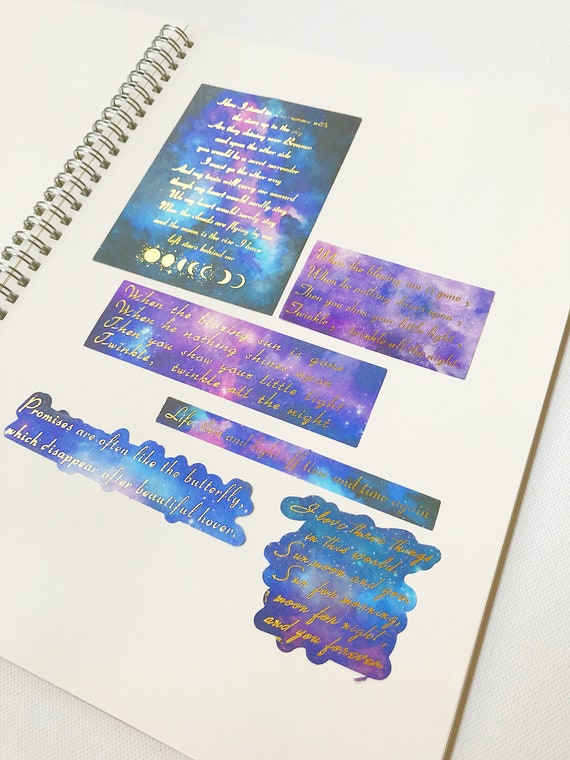 Here I stand in with
the stars up in the sky
Are they shining over Brenner
and upon the other side
you would be a sweet surrender
I must go the other way
And my train will carry me onward
though my heart would surely stay
Wo my heart would surely stay
Now the clouds are flying by me
and the moon is the rise I have
left stars behind me
When the blazing sun is gone,
When he nothing shines upon,
Then you show your little light,
Twinkle, twinkle all the night.
When the blazing sun is gone
When he nothing shines upon
Then you show your little light
Twinkle, twinkle all the night
Life and time again
Promises are often like the butterfly,
which disappear after beautiful hover.
I love three things
in this world.
Sun moon and you
Sun for morning,
moon for night
and you forever